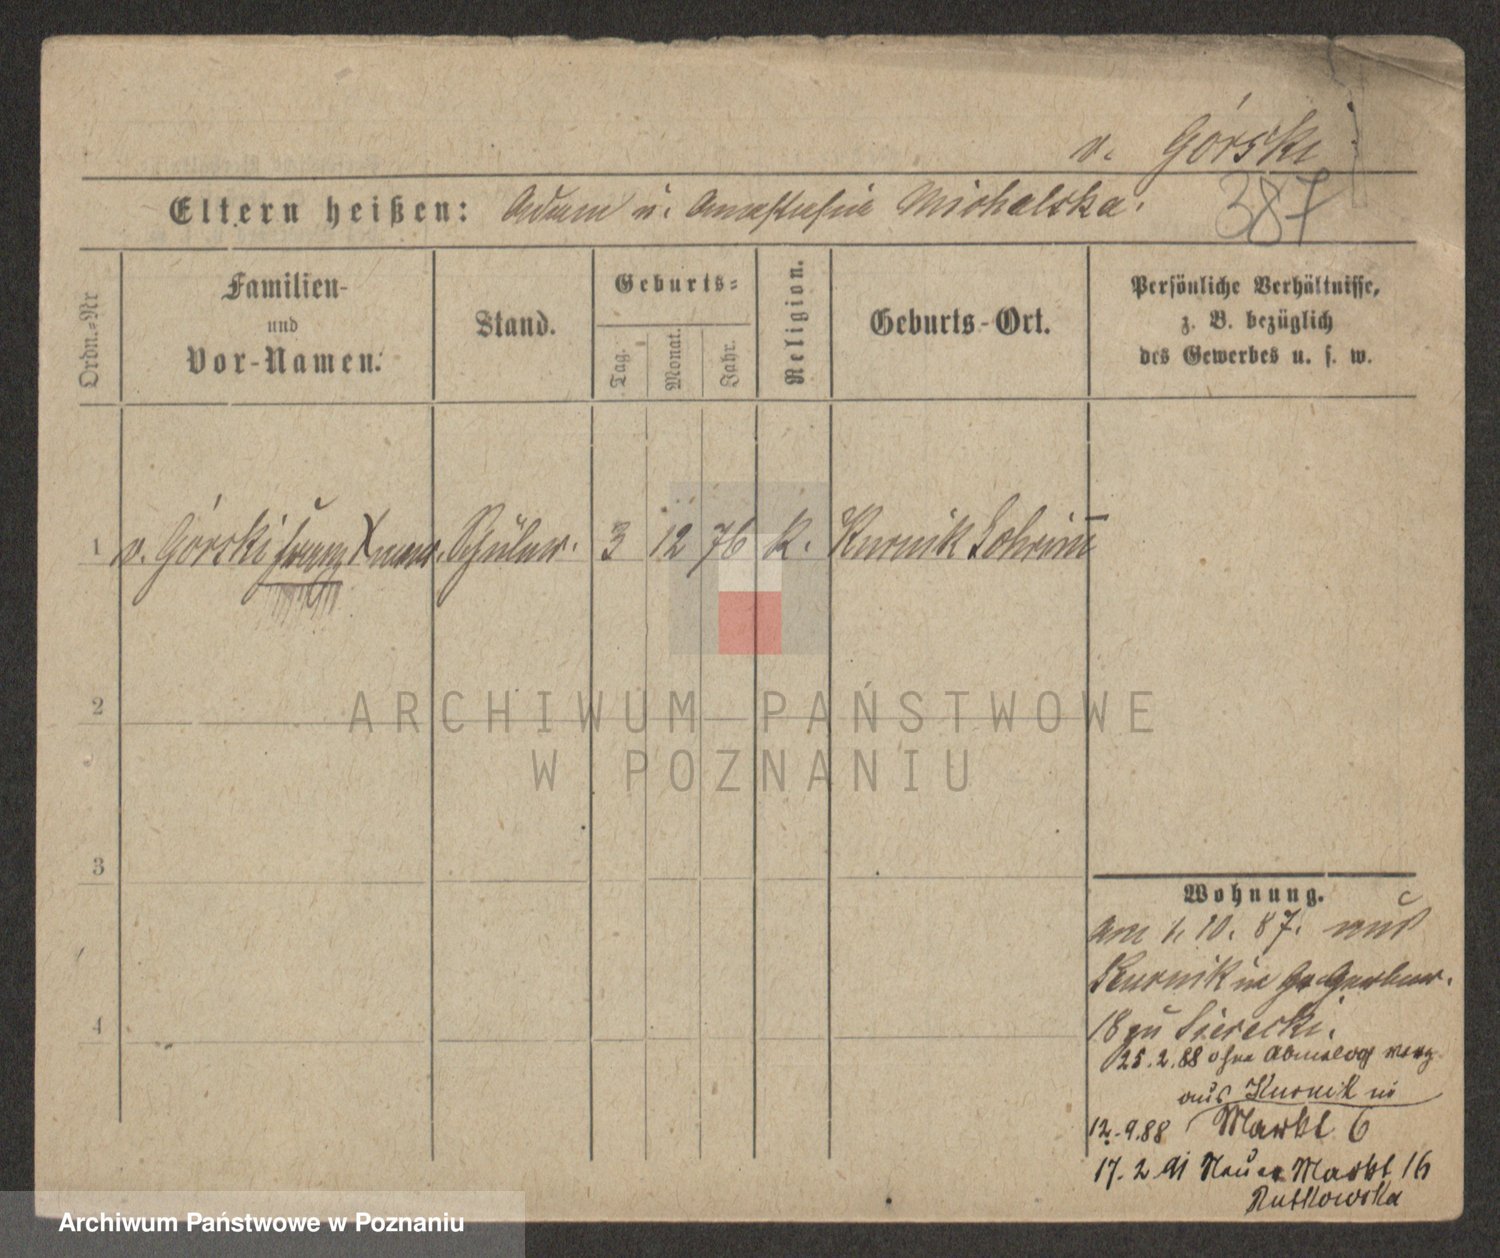 v. Górski
387
Eltern heißen: Adam u. Anastasia Michalska.
Ordn.=Nr
Familien-
und
Vor-Namen.
Stand.
Geburts=
Tag.
Monat.
Jahr.
Religion.
Geburts-Ort.
Persönliche Verhältnisse,
z. B. bezüglich
des Gewerbes u. s. w.
1 v. Górski Franz Schüler. 3 12 76 k. Kurnik Schrim̅
2
3
4
Wohnung.
am 1. 10. 87. aus
Kurnik in Gr Gerber.
18 zu Sierecki.
25.2.88 ohne Abmeldg verz.
aus Kurnik in
12.9.88 Markt 6
17. 2 91 Neuer Markt 16
Rutkowska
ARCHIWUM PAŃSTWOWE
W POZNANIU
Archiwum Państwowe w Poznaniu